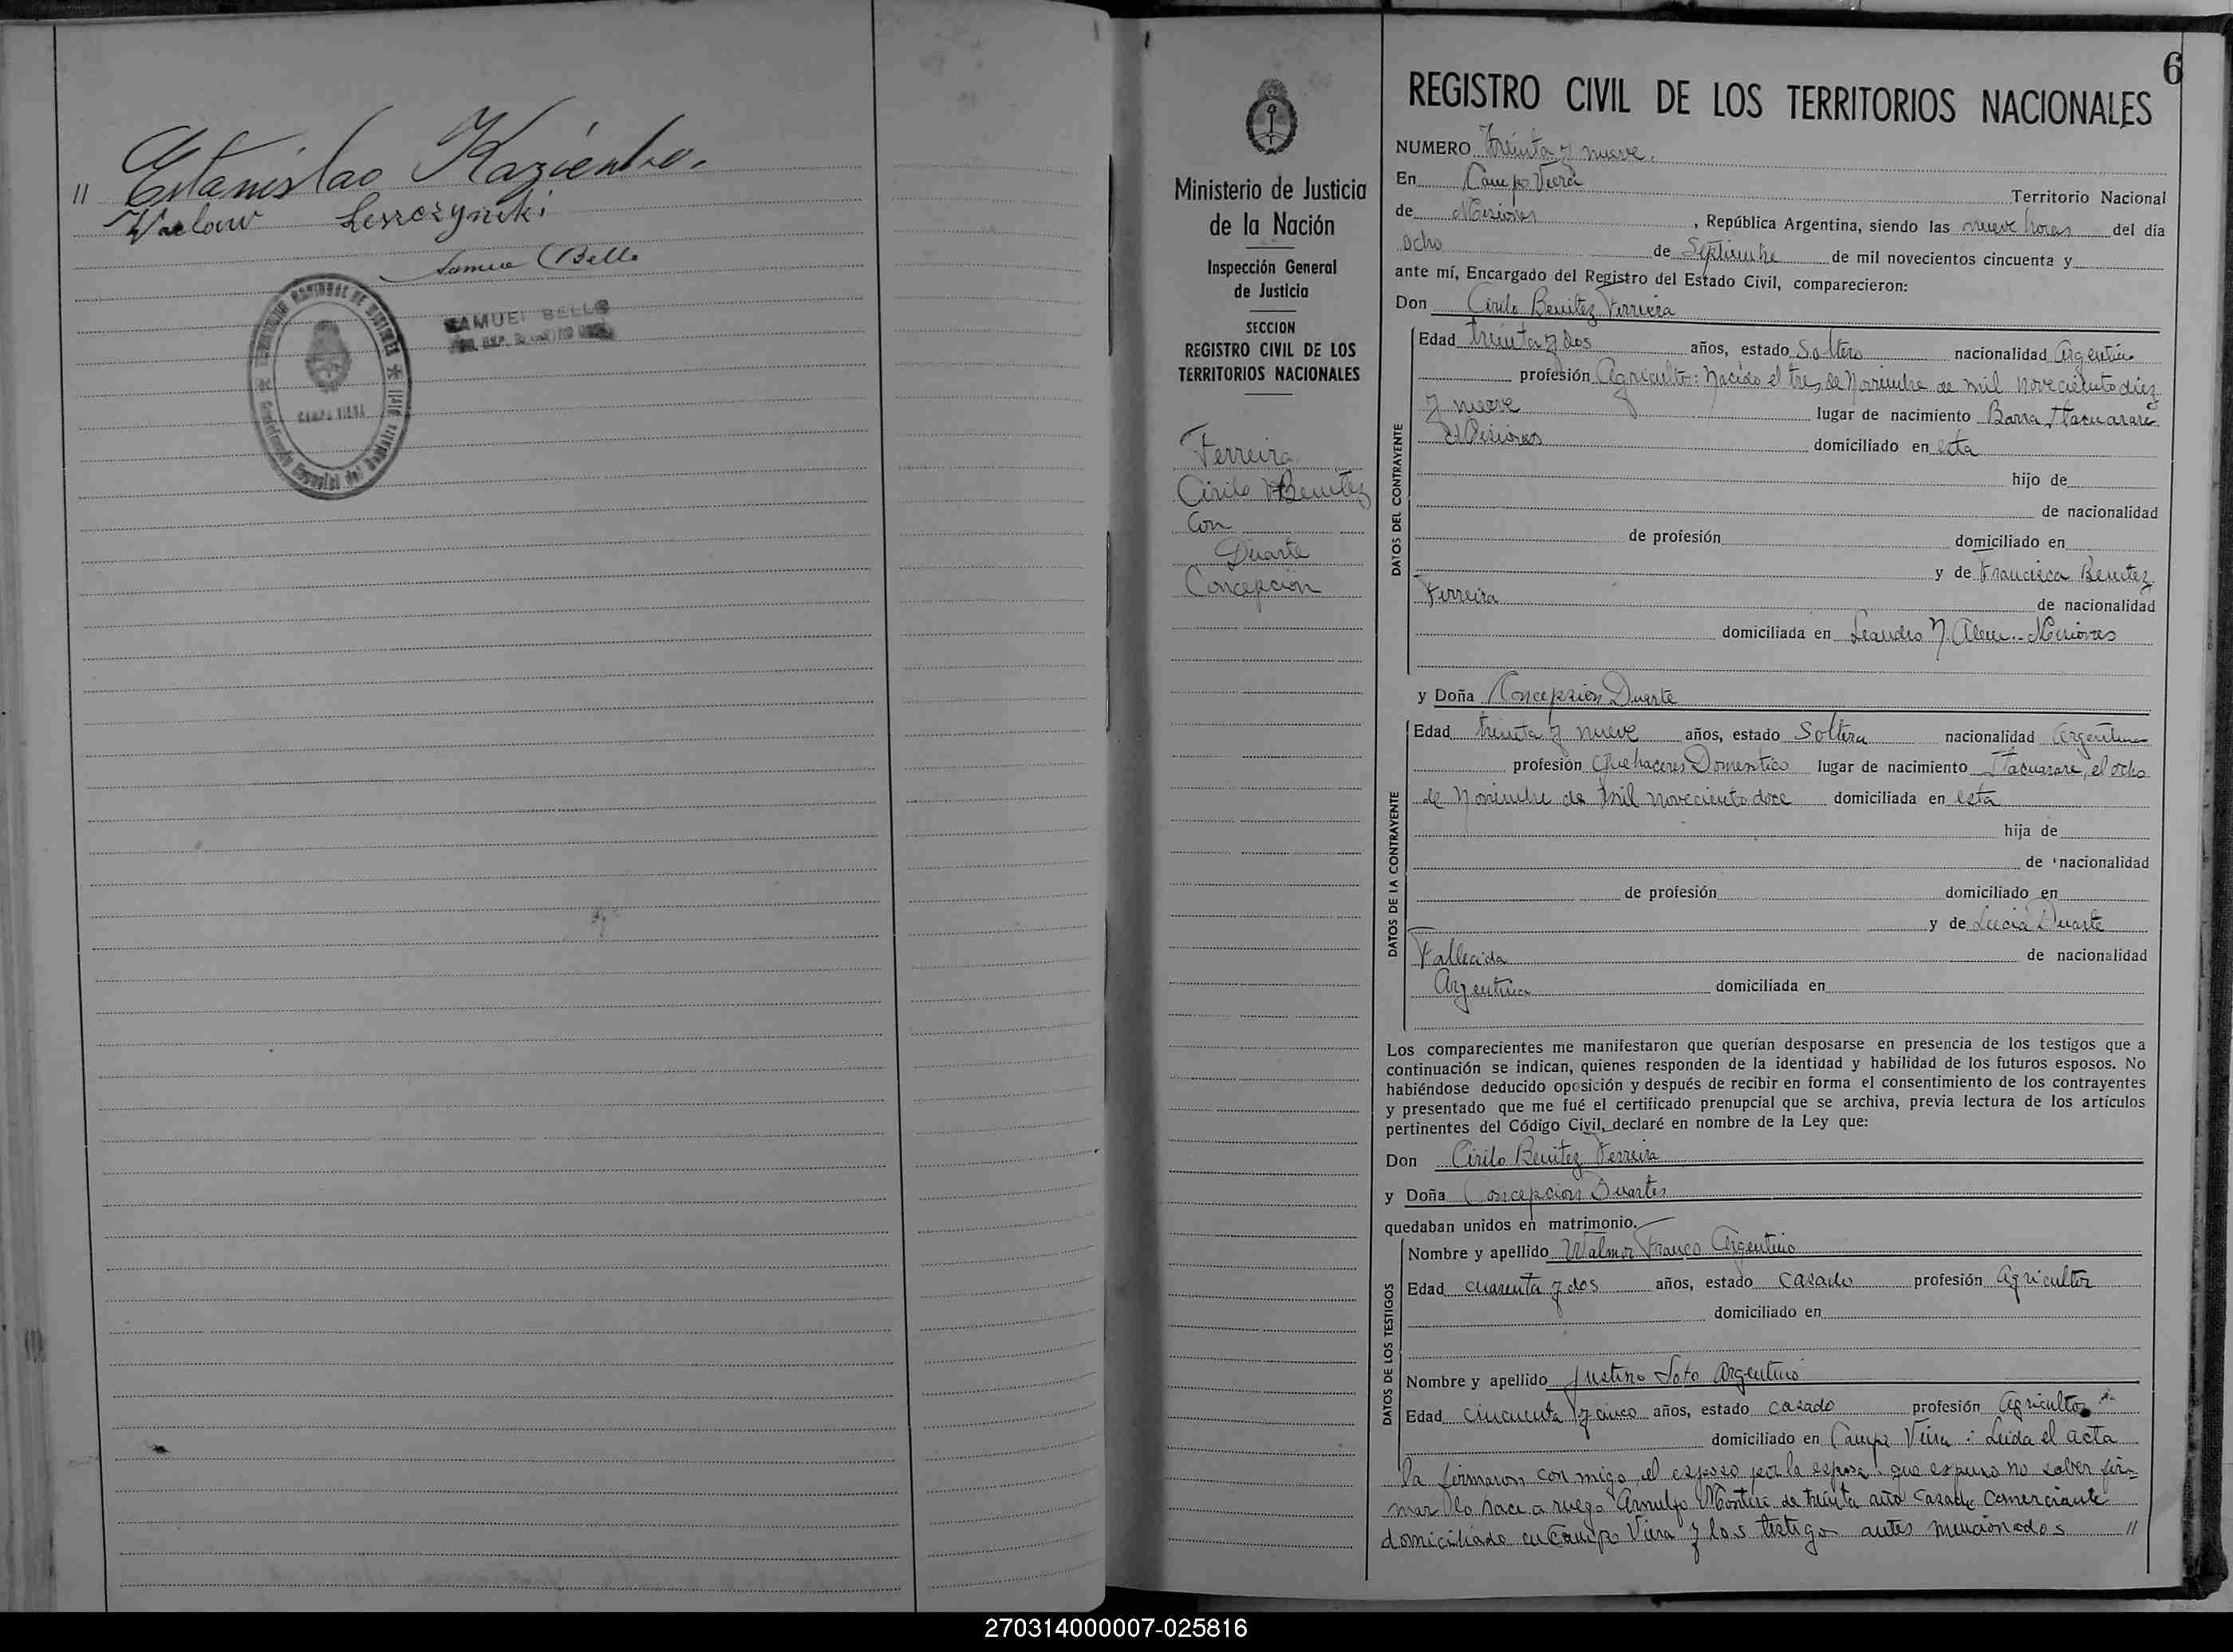 " Estanislao Kazienko.
Waclaw Leszczynski
Samuel Bello
SAMUEL BELLO
CAMPO VIERA
6
REGISTRO CIVIL DE LOS TERRITORIOS NACIONALES
Ministerio de Justicia
de la Nación
Inspección General
de Justicia
SECCION
REGISTRO CIVIL DE LOS
TERRITORIOS NACIONALES
Ferreira
Cirilo Benitez
Con
Duarte
Concepcion
NUMERO Treinta y nueve.
En Campo Viera Territorio Nacional
de Misiones, República Argentina, siendo las nueve horas del día
ocho de Septiembre de mil novecientos cincuenta y
ante mí, Encargado del Registro del Estado Civil, comparecieron:
Don Cirilo Benitez Ferreira
DATOS DEL CONTRAYENTE
Edad treinta y dos años, estado Soltero nacionalidad Argentino
profesión Agricultor: Nacido el tres de Noviembre de mil novecientodiez
y nueve lugar de nacimiento Barra Itacuarare
Misiones domiciliado en esta
hijo de
de nacionalidad
de profesión domiciliado en
y de Francisca Benitez
Ferreira de nacionalidad
domiciliada en Leandro N. Alem.-Misiones
y Doña Concepción Duarte
DATOS DE LA CONTRAYENTE
Edad treinta y nueve años, estado Soltera nacionalidad Argentina
profesión Quehaceres Domestico lugar de nacimiento Itacuarare, el ocho
de Noviembre de mil noveciento doce domiciliada en esta
hija de
de nacionalidad
de profesión domiciliado en
y de Lucia Duarte
Fallecida de nacionalidad
Argentina domiciliada en
Los comparecientes me manifestaron que querían desposarse en presencia de los testigos que a
continuación se indican, quienes responden de la identidad y habilidad de los futuros esposos. No
habiéndose deducido oposición y después de recibir en forma el consentimiento de los contrayentes
y presentado que me fué el certificado prenupcial que se archiva, previa lectura de los artículos
pertinentes del Código Civil, declaré en nombre de la Ley que:
Don Cirilo Benitez Ferreira
y Doña Concepcion Duartes
quedaban unidos en matrimonio.
DATOS DE LOS TESTIGOS
Nombre y apellido Walmor Franco Argentino
Edad cuarenta y dos años, estado casado profesión Agricultor
domiciliado en
Nombre y apellido Justino Soto Argentino
Edad cincuenta y cinco años, estado casado profesión Agricultor
domiciliado en Campo Viera : Leida el acta
la firmaron con migo, el esposo por la esposa que espuso no saber fir-
mar lo hace a ruego Arnulfo de treinta año casado comerciante
domiciliado en Campo Viera y los testigo antes mencionados "
270314000007-025816